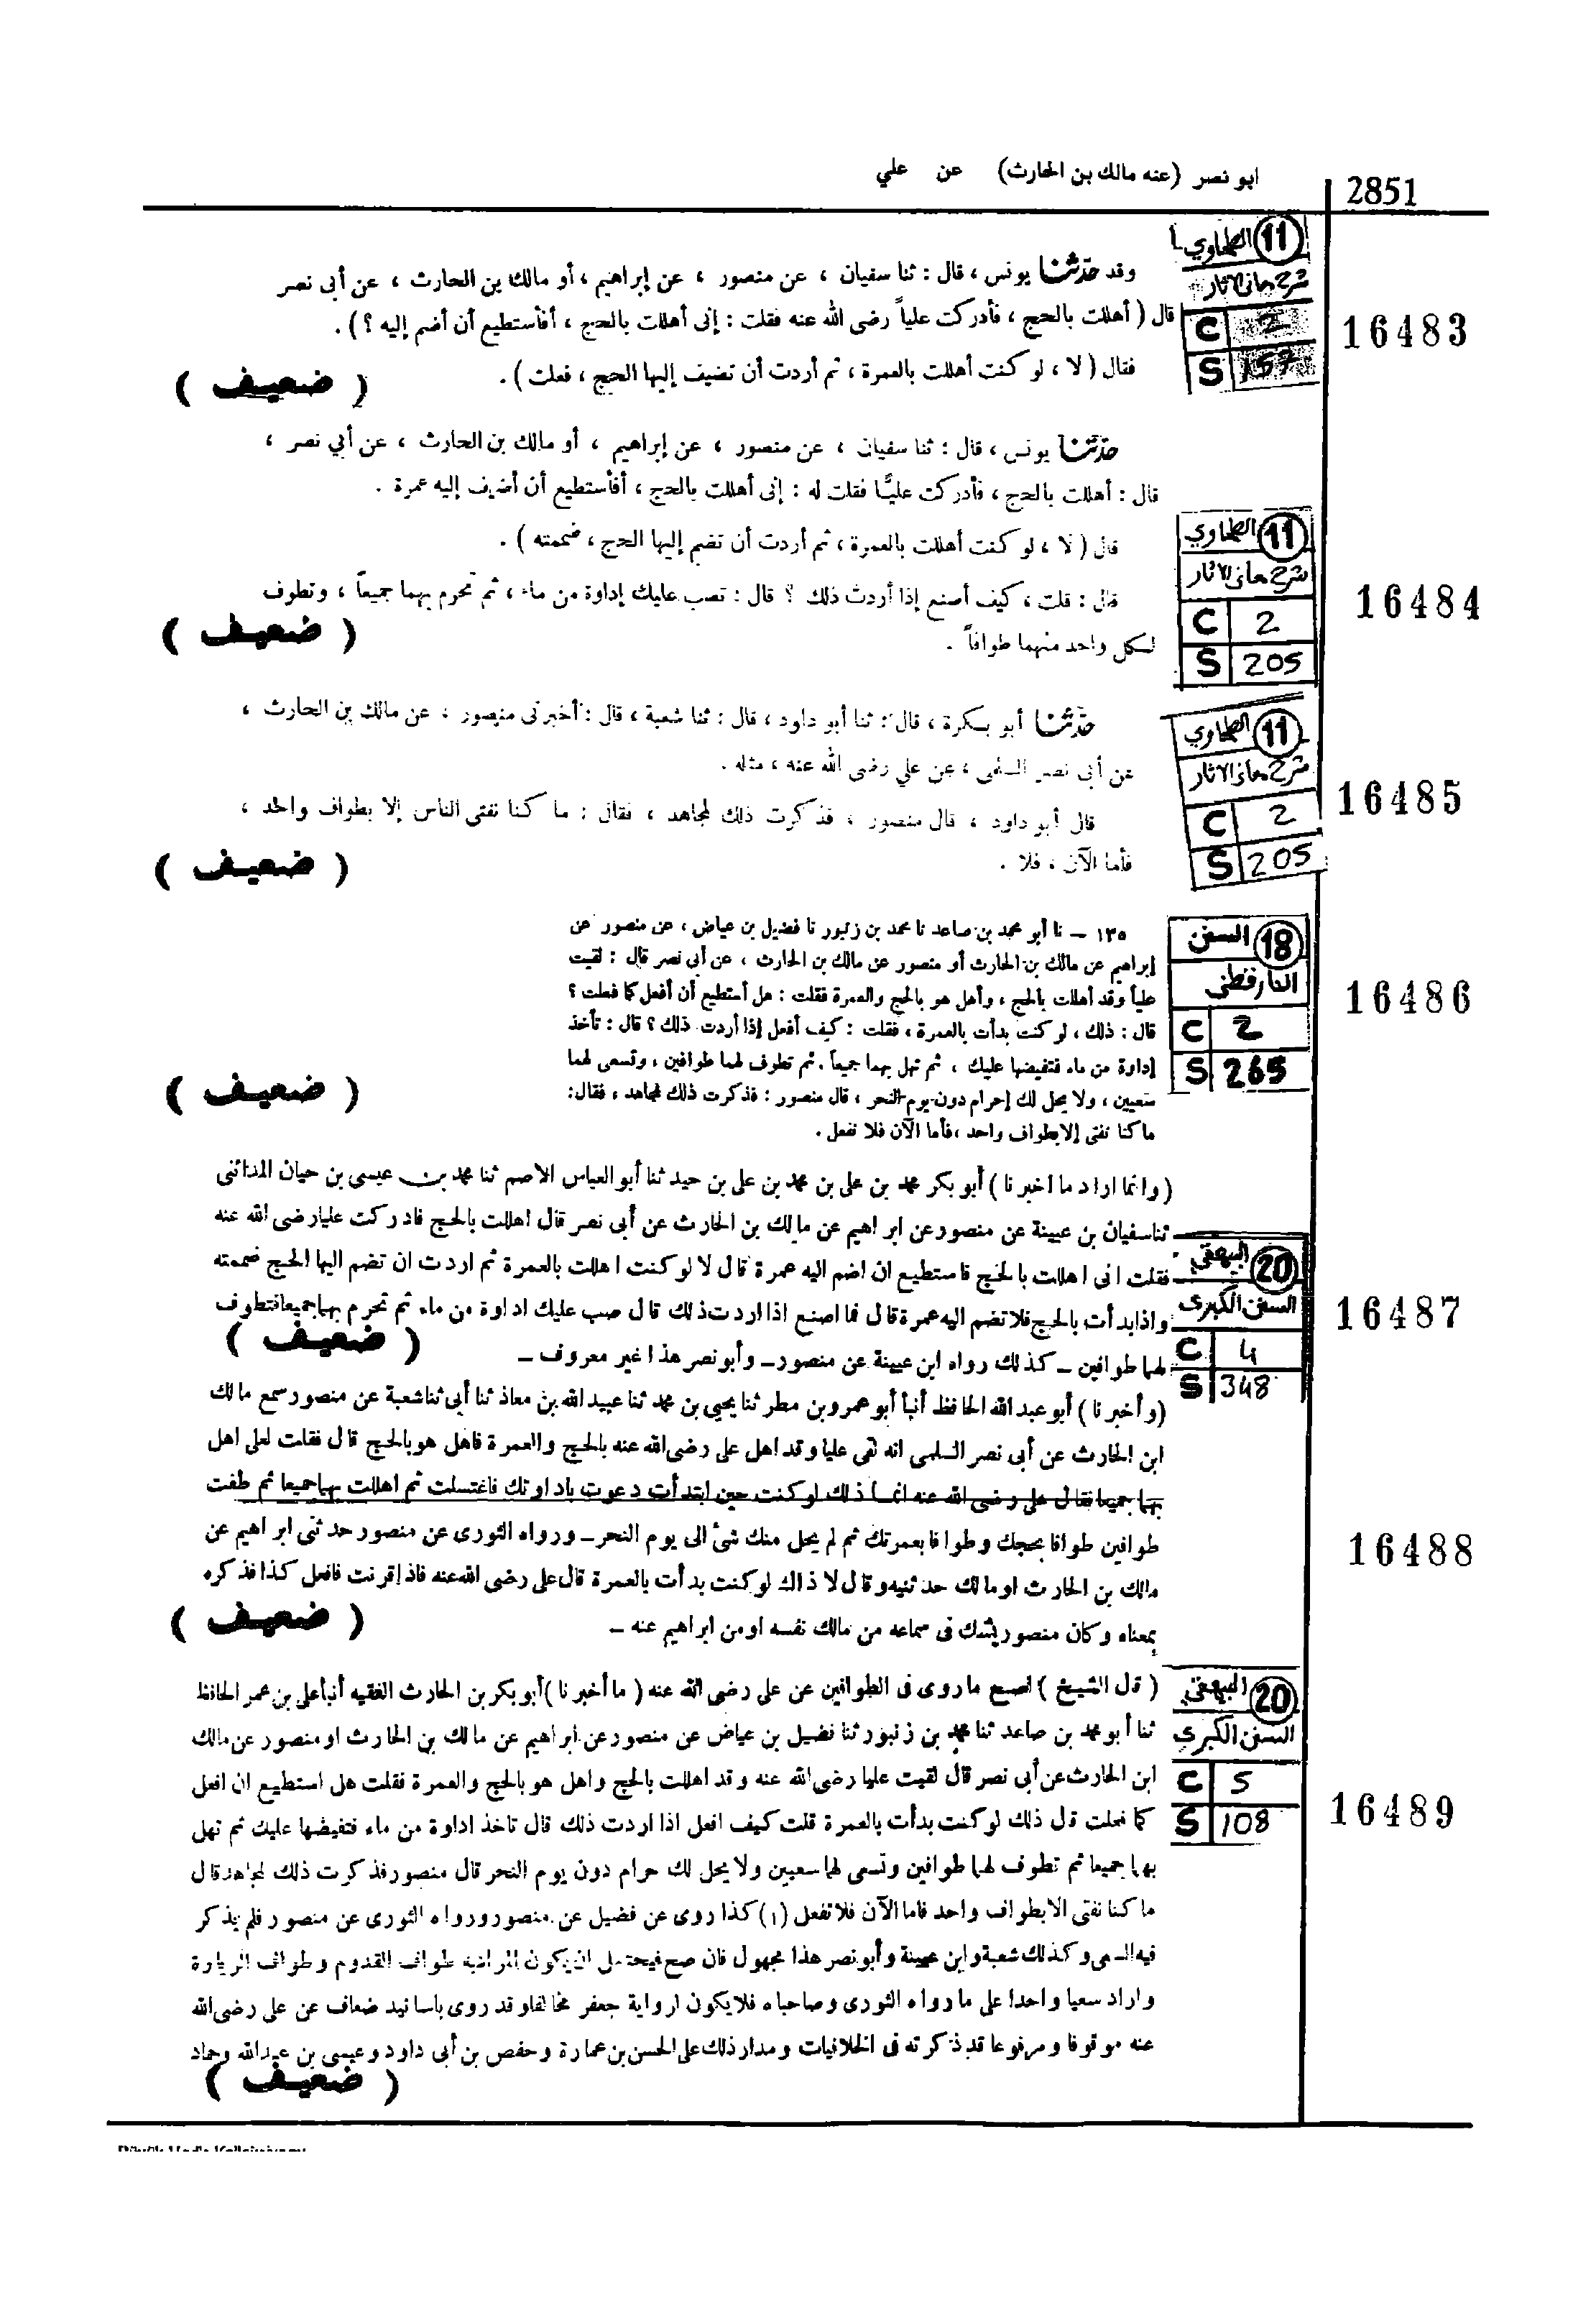 ابو نصر (عنه مالك بن الحارث) عن علي
2851
11 الطحاوي
شرح معاني الاثار
C 2
S 157
16483
وقد حدثنا يونس ، قال : ثنا سفيان ، عن منصور ، عن إبراهيم ، أو مالك بن الحارث ، عن أبى نصر
قال ( أهللت بالحج ، فأدركت علياً رضى الله عنه فقلت : إنى أهللت بالحج ، أفأستطيع أن أضم إليه ؟ ) .
فقال ( لا ، لو كنت أهللت بالعمرة ، ثم أردت أن تضيف إليها الحج ، فعلت ) .
( ضعيف )
حدثنا يونس ، قال : ثنا سفيان ، عن منصور ، عن إبراهيم ، أو مالك بن الحارث ، عن أبي نصر ،
قال : أهللت بالحج ، فأدركت عليًّا فقلت له : إنى أهللت بالحج ، أفأستطيع أن أضيف إليه عمرة .
قال ( لا ، لو كنت أهللت بالعمرة ، ثم أردت أن تضم إليها الحج ، ضممته ) .
قال : قلت ، كيف أصنع إذا أردت ذلك ؟ قال : تصب عليك إداوة من ماء ، ثم تحرم بهما جميعاً ، وتطوف
لكل واحد منهما طوافاً .
( ضعيف )
11 الطحاوي
شرح معاني الاثار
C 2
S 205
16484
حدثنا أبو بكرة ، قال : ثنا أبو داود ، قال : ثنا شعبة ، قال : أخبرنى منصور ، عن مالك بن الحارث ،
عن أبى نصر السلمى ، عن علي رضى الله عنه ، مثله .
قال أبو داود ، قال منصور ، فذكرت ذلك لمجاهد ، فقال : ما كنا نفتى الناس إلا بطواف واحد ،
فأما الآن ، فلا .
( ضعيف )
11 الطحاوي
شرح معاني الاثار
C 2
S 205
16485
١٣٥ – نا أبو محمد بن صاعد نا محمد بن زنبور نا فضيل بن عياض ، عن منصور عن
إبراهيم عن مالك بن الحارث أو منصور عن مالك بن الحارث ، عن أبى نصر قال : لقيت
علياً وقد أهللت بالحج ، وأهل هو بالحج والعمرة فقلت : هل أستطيع أن أفعل كما فعلت ؟
قال : ذلك ، لو كنت بدأت بالعمرة ، فقلت : كيف أفعل إذا أردت ذلك ؟ قال : تأخذ
إداوة من ماء فتفيضها عليك ، ثم تهل بهما جميعاً . ثم تطوف لهما طوافين ، وتسعى لهما
سعيين ، ولا يحل لك إحرام دون يوم النحر ، قال منصور : فذكرت ذلك لمجاهد ، فقال :
ما كنا نفتى إلا بطواف واحد ، فأما الآن فلا تفعل .
( ضعيف )
18 السنن
الدارقطني
C 2
S 265
16486
( وانما اراد ما اخبرنا ) أبو بكر محمد بن على بن محمد بن على بن حيد ثنا أبو العباس الاصم ثنا محمد بن عيسى بن حيان المدائنى
ثنا سفيان بن عيينة عن منصور عن ابراهيم عن مالك بن الحارث عن أبى نصر قال اهللت بالحج فادركت عليا رضى الله عنه
فقلت انى اهللت بالحج فاستطيع ان اضم اليه عمرة قال لا لو كنت اهللت بالعمرة ثم اردت ان تضم اليها الحج ضممته
واذا بدأت بالحج فلا تضم اليه عمرة قال فما اصنع اذا اردت ذلك قال صب عليك اداوة من ماء ثم تحرم بهما جميعا فتطوف
لهما طوافين – كذلك رواه ابن عيينة عن منصور – وأبو نصر هذا غير معروف –
( ضعيف )
20 البيهقي
السنن الكبرى
C 4
S 348
16487
( وأخبرنا ) أبو عبد الله الحافظ أنبأ أبو عمرو بن مطر ثنا يحيى بن محمد ثنا عبيد الله بن معاذ ثنا أبى ثنا شعبة عن منصور سمع مالك
ابن الحارث عن أبى نصر السلمى انه لقى عليا وقد اهل على رضى الله عنه بالحج والعمرة فاهل هو بالحج قال فقلت لعلى اهل
بهما جميعا فقال على رضى الله عنه انما ذلك لو كنت حين ابتدأت دعوت باداوتك فاغتسلت ثم اهللت بهما جميعا ثم طفت
طوافين طوافا بحجك وطوافا بعمرتك ثم لم يحل منك شئ الى يوم النحر – ورواه الثورى عن منصور حدثنى ابراهيم عن
مالك بن الحارث او مالك حدثنيه وقال لا ذاك لو كنت بدأت بالعمرة قال على رضى الله عنه فاذا قرنت فافعل كذا فذكره
بمعناه وكان منصور يشك فى سماعه من مالك نفسه او من ابراهيم عنه –
( ضعيف )
16488
( قال الشيخ ) اصح ما روى فى الطوافين عن على رضى الله عنه ( ما أخبرنا ) أبو بكر بن الحارث الفقيه أنبأ على بن عمر الحافظ
ثنا أبو محمد بن صاعد ثنا محمد بن زنبور ثنا فضيل بن عياض عن منصور عن ابراهيم عن مالك بن الحارث او منصور عن مالك
ابن الحارث عن أبى نصر قال لقيت عليا رضى الله عنه وقد اهللت بالحج واهل هو بالحج والعمرة فقلت هل استطيع ان افعل
كما فعلت قال ذلك لو كنت بدأت بالعمرة قلت كيف افعل اذا اردت ذلك قال تاخذ اداوة من ماء فتفيضها عليك ثم تهل
بهما جميعا ثم تطوف لهما طوافين وتسعى لهما سعيين ولا يحل لك حرام دون يوم النحر قال منصور فذكرت ذلك لمجاهد قال
ما كنا نفتى الا بطواف واحد فاما الآن فلا تفعل (١) كذا روى عن فضيل عن منصور ورواه الثورى عن منصور فلم يذكر
فيه السعى وكذلك شعبة وابن عيينة وأبو نصر هذا مجهول فان صح فيحتمل ان يكون المراد به طواف القدوم وطواف الزيارة
واراد سعيا واحدا على ما رواه الثورى وصاحباه فلا يكون لرواية جعفر مخالفا وقد روى باسانيد ضعاف عن على رضى الله
عنه موقوفا ومرفوعا قد ذكرته فى الخلافيات ومدار ذلك على الحسن بن عمارة وحفص بن أبى داود وعيسى بن عبد الله وحماد
( ضعيف )
20 البيهقي
السنن الكبرى
C 5
S 108
16489